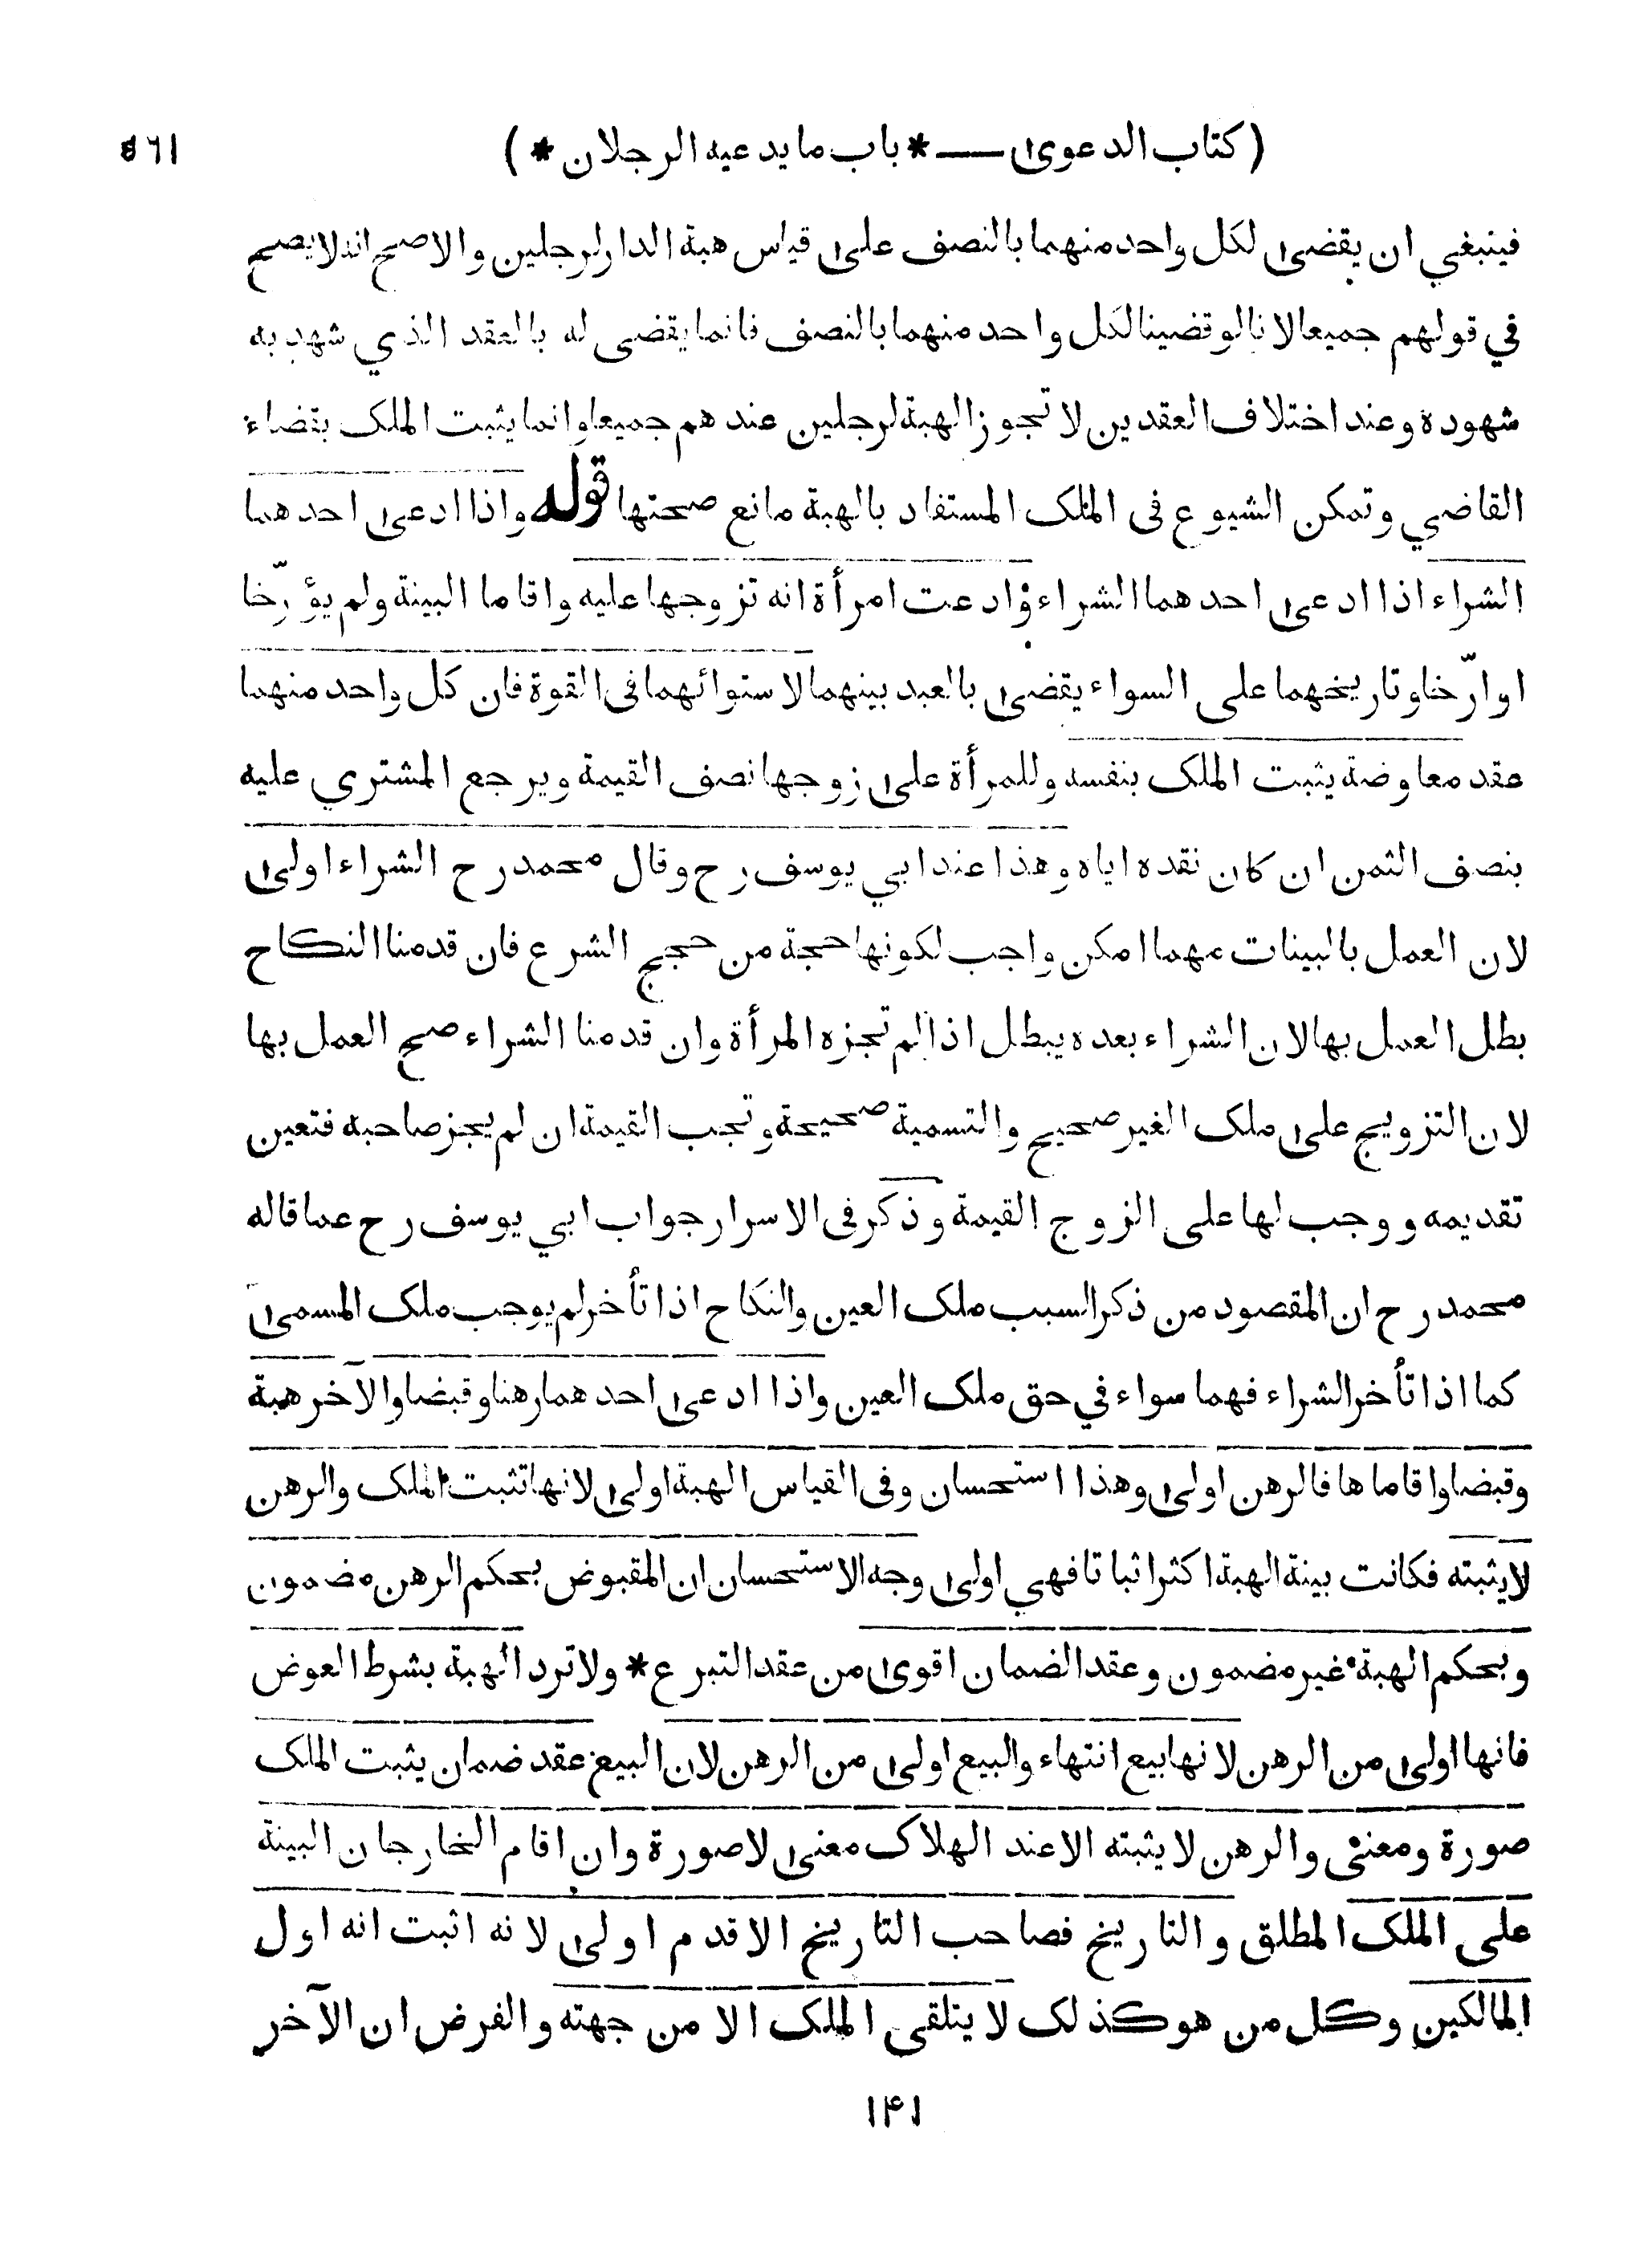 (كتاب الدعوى — * باب ما يدعيه الرجلان *)
٥٦١
فينبغي ان يقضى لكل واحد منهما بالنصف على قياس هبة الدار لرجلين والاصح انه لا يصح
في قولهم جميعا لانا لو قضينا لكل واحد منهما بالنصف فانما يقضى له بالعقد الذي شهد به
شهوده وعند اختلاف العقدين لا تجوز الهبة لرجلين عندهم جميعا وانما يثبت الملك بقضاء
القاضي وتمكن الشيوع فى الملك المستفاد بالهبة مانع صحتها قوله واذا ادعى احدهما
الشراء اذا ادعى احدهما الشراء وادعت امرأة انه تزوجها عليه واقاما البينة ولم يؤرّخا
او ارّخا وتاريخهما على السواء يقضى بالعبد بينهما لاستوائهما فى القوة فان كل واحد منهما
عقد معاوضة يثبت الملك بنفسه وللمرأة على زوجها نصف القيمة ويرجع المشتري عليه
بنصف الثمن ان كان نقده اياه وهذا عند ابي يوسف رح وقال محمد رح الشراء اولى
لان العمل بالبينات مهما امكن واجب لكونها حجة من حجج الشرع فان قدمنا النكاح
بطل العمل بها لان الشراء بعده يبطل اذا لم تجزه المرأة وان قدمنا الشراء صح العمل بها
لان التزويج على ملك الغير صحيح والتسمية صحيحة وتجب القيمة ان لم يجز صاحبه فتعين
تقديمه ووجب لها على الزوج القيمة وذكر فى الاسرار جواب ابي يوسف رح عما قاله
محمد رح ان المقصود من ذكر السبب ملك العين والنكاح اذا تأخر لم يوجب ملك المسمى
كما اذا تأخر الشراء فهما سواء في حق ملك العين واذا ادعى احدهما رهنا وقبضا والآخر هبة
وقبضا واقاماها فالرهن اولى وهذا استحسان وفى القياس الهبة اولى لانها تثبت الملك والرهن
لا يثبته فكانت بينة الهبة اكثر اثباتا فهي اولى وجه الاستحسان ان المقبوض بحكم الرهن مضمون
وبحكم الهبة غير مضمون وعقد الضمان اقوى من عقد التبرع * ولا ترد الهبة بشرط العوض
فانها اولى من الرهن لانها بيع انتهاء والبيع اولى من الرهن لان البيع عقد ضمان يثبت الملك
صورة ومعنى والرهن لا يثبته الا عند الهلاك معنى لا صورة وان اقام الخارجان البينة
على الملك المطلق والتاريخ فصاحب التاريخ الاقدم اولى لانه اثبت انه اول
المالكين وكل من هو كذلك لا يتلقى الملك الا من جهته والفرض ان الآخر
١۴١